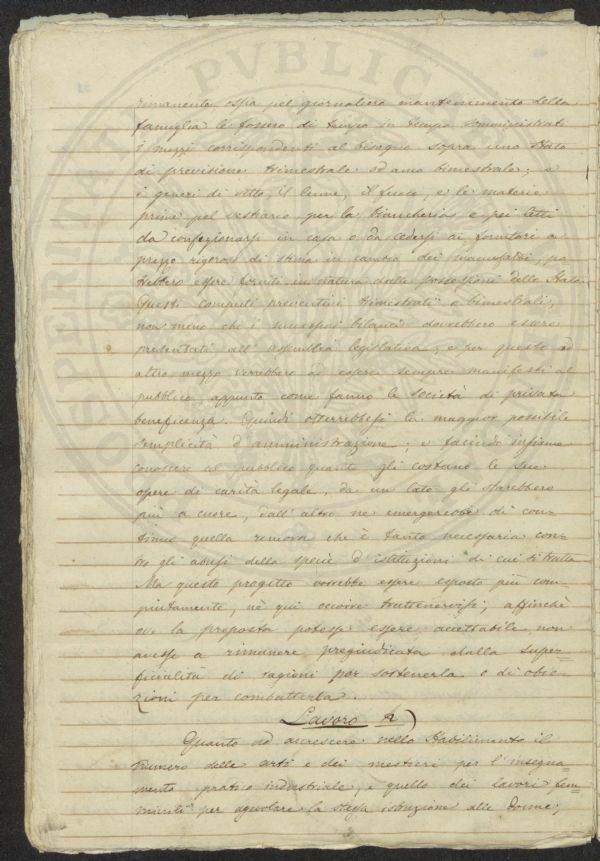 rimanente ossia pel giornaliero mantenimento della
famiglia le fossero di in tempo somministrati
i mezzi corrispondenti al bisogno sopra uno Stato
di previsione trimestrale od anco bimestrale; o
i generi di vitto, il lume, il fuoco, e le materie
prime pel vestiario per la biancheria e pei letti
da confezionarsi in casa o da cedersi ai fornitori a
prezzo rigoroso di stima in cambio dei manufatti, po
trebbero essere forniti in natura dalle possessioni dello Stato.
Questi computi preventivi trimestrali o bimestrali,
non meno che i successivi bilanci dovrebbero essere
presentati all' Assemblea legislativa, e per questo od
altro mezzo verrebbero ad essere sempre manifesti al
pubblico, appunto come fanno le Società di privata
beneficenza. Quindi otterrebbesi la maggior possibile
semplicità d'amministrazione; e facendo insieme
conoscere al pubblico quanto gli costano le sue
opere di carità legale, da un lato gli starebbero
più a cuore, dall' altro ne emergerebbe di con-
tinuo quella remora che è tanto necessaria con-
tro gli abusi della specie d'istituzioni di cui si tratta
Ma questo progetto vorrebbe essere esposto più com-
piutamente, nè qui occorre trattenervisi; affinchè
ove la proposta potesse essere accettabile non
avesse a rimanere pregiudicata dalla super-
ficialità di ragioni per sostenerla o di obie-
zioni per combatterla.
Lavoro
Quanto ad accrescere nello Stabilimento il
numero delle arti e dei mestieri per l'insegna-
mento pratico industriale, e quello dei lavori fem-
minili per agevolare la stessa istruzione alle donne;
PVBLICA